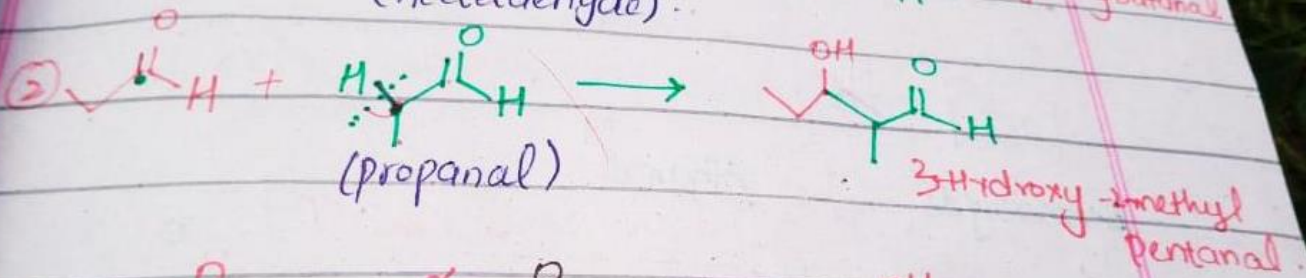 ② O H + H O H → OH O H
(propanal)
3-Hydroxy-2-methyl
pentanal